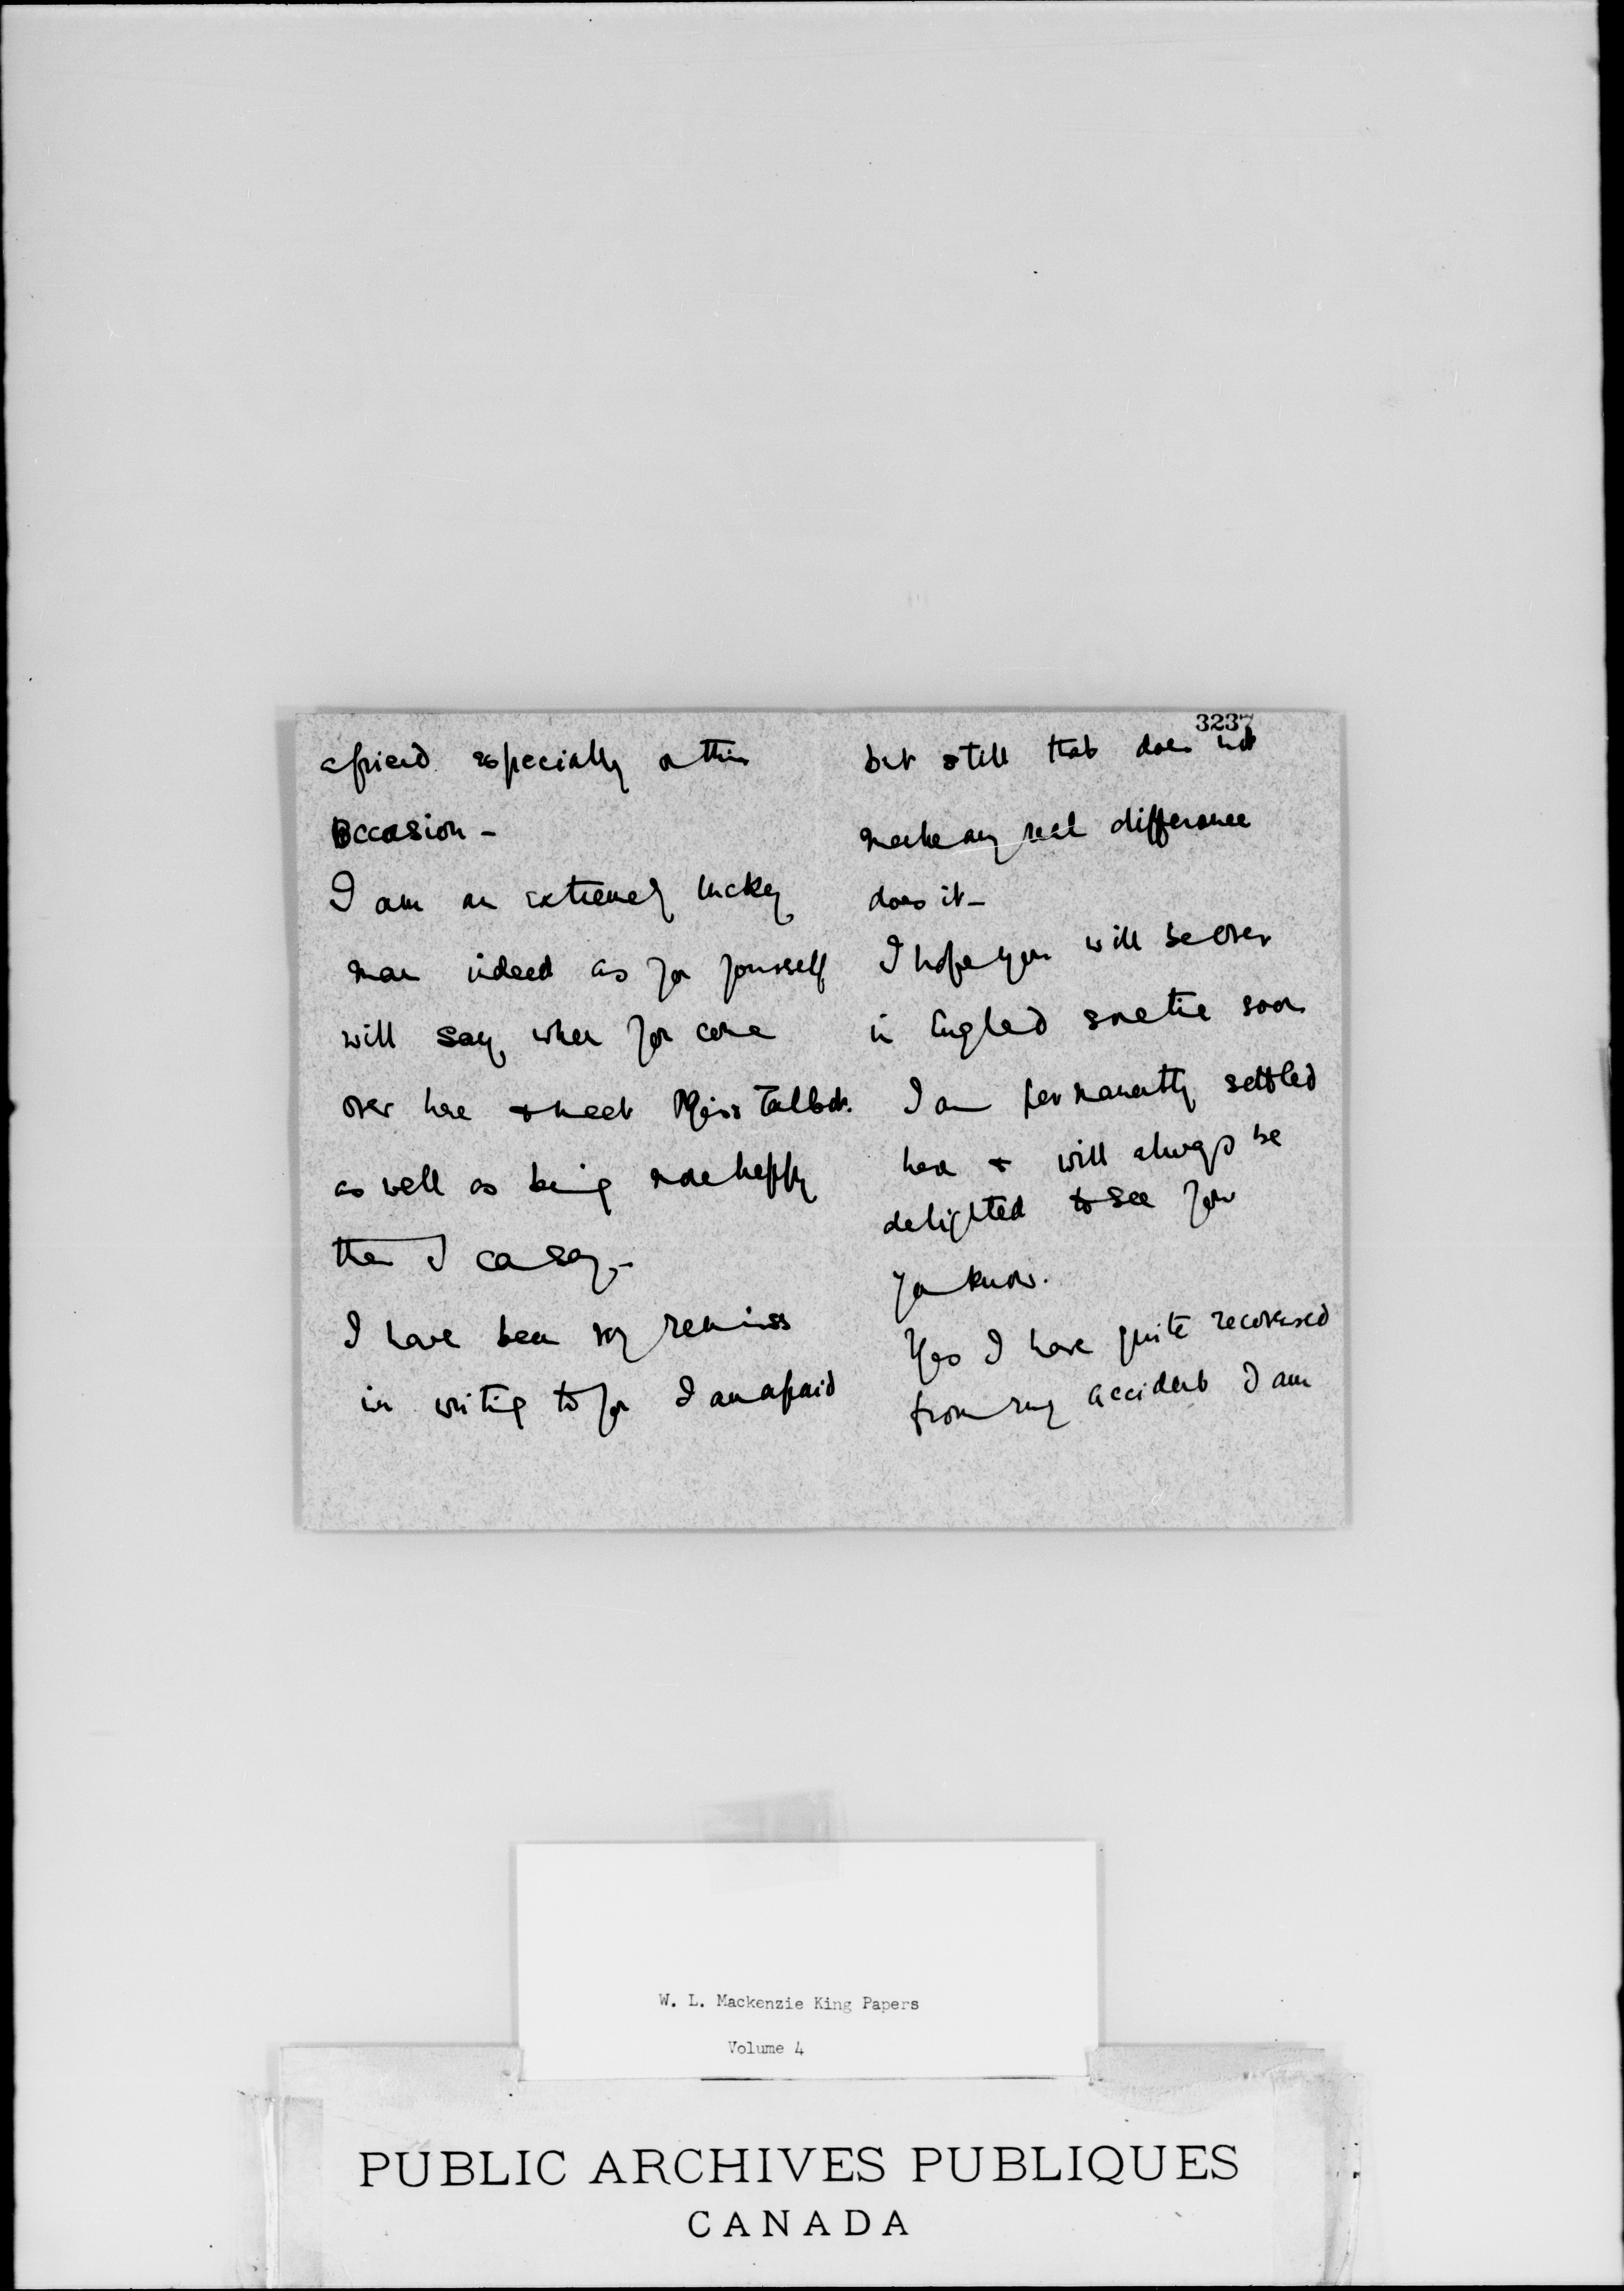 a friend especially on this
occasion -
I am an extremely lucky
man indeed as you yourself
will say when you come
over here & meet Miss Talbot.
as well as being more happy
than I can say. -
I have been very remiss
in writing to you I am afraid
3237
but still that does not
make any real difference
does it -
I hope you will be over
in England sometime soon
I am permanently settled
here & will always be
delighted to see you
you know.
Yes I have quite recovered
from my accident I am
W. L. Mackenzie King Papers
Volume 4
PUBLIC ARCHIVES PUBLIQUES
CANADA